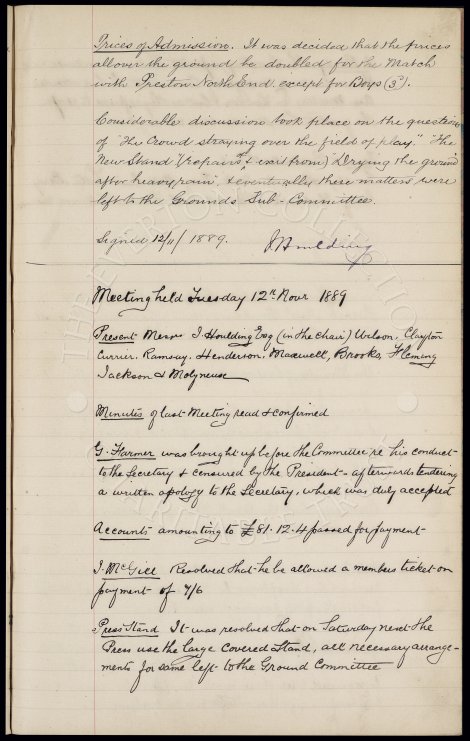 Prices of Admission. It was decided that the prices
all over the ground be doubled for the Match
with Preston North End. except for Boys (3d).
Considerable discussion took place on the question
of "The Crowd straying over the field of play." "The
New Stand (repairs to & exit from) & Drying the ground
after heavy rain", & eventually these matters were
left to the Grounds Sub-Committee.
Signed 12/11/1889. J Houlding
Meeting held Tuesday 12th Novr 1889
Present Messrs J. Houlding Esq (in the chair) Wilson, Clayton
Currier, Ramsay, Henderson, Maxwell, Brooks, Fleming
Jackson & Molyneux
Minutes of last Meeting read & confirmed
G. Farmer was brought up before the Committee re his conduct
to the Secretary & censured by the President - afterwards tendering
a written apology to the Secretary, which was duly accepted
Accounts amounting to £81.12.4 passed for payment
J. McGill Resolved that he be allowed a members ticket on
payment of 7/6
Press Stand It was resolved that on Saturday next the
Press use the large covered Stand, all necessary arrange-
ments for same left to the Ground Committee
THE EVERTON COLLECTION
CHARITABLE TRUST